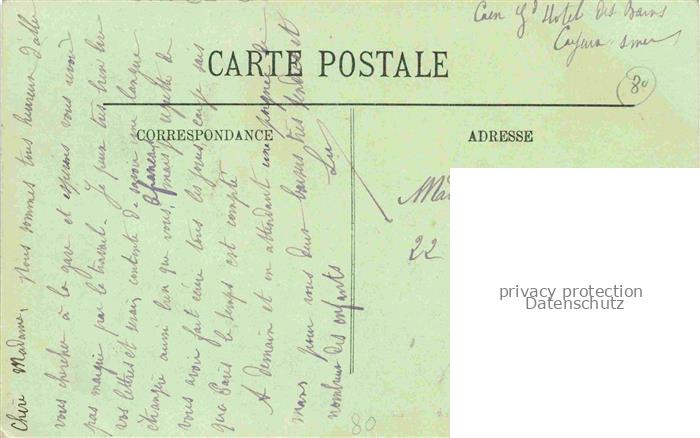 Caen Gd Hotel des Bains
Cayeux s mer
80
CARTE POSTALE
CORRESPONDANCE
ADRESSE
Chère Madame, Nous sommes très heureux d'aller
vous chercher à la gare et espérons vous revoir
pas maigrie par le travail. Je puis très bien lire
vos lettres et serais contente de savoir une langue
étrangère aussi bien que vous, mais je regrette de
vous avoir fait écrire tous les jours, car je sais
que Paris le temps est compté
A demain et en attendant une poignée de
mains pour vous deux baisers très tendres et
nombreux des enfants
22
privacy protection
Datenschutz
80